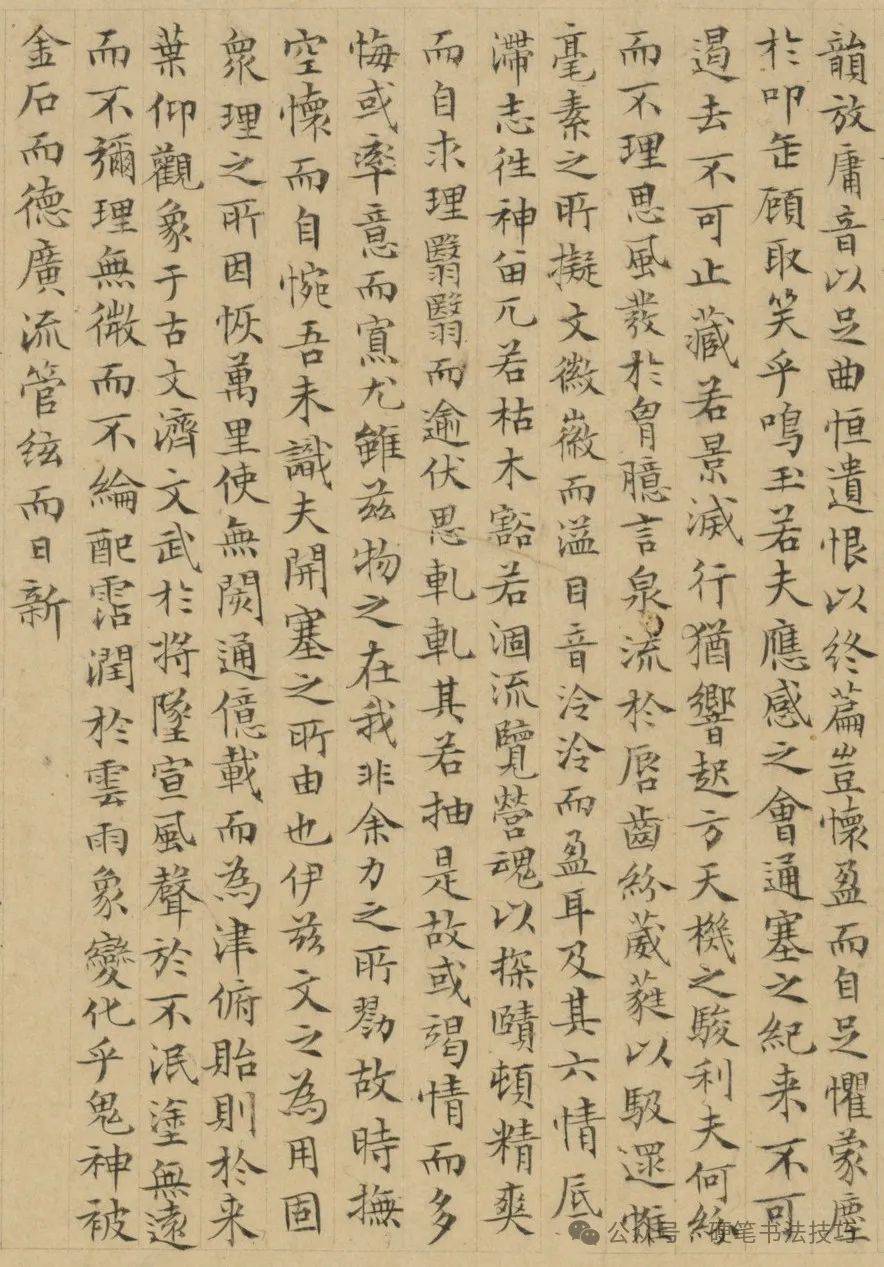 韻放庸音以足曲恒遺恨以終篇豈懷盈而自足懼蒙塵
於叩缶顧取笑乎鳴玉若夫應感之會通塞之紀来不可
遏去不可止藏若景滅行猶響起方天機之駿利夫何紛
而不理思風發於胷臆言泉流於脣齒紛葳蕤以馺遝惟
毫素之所擬文徽徽而溢目音泠泠而盈耳及其六情底
滯志徃神留兀若枯木豁若涸流覽營魂以探賾頓精爽
而自求理翳翳而逾伏思軋軋其若抽是故或竭情而多
悔或率意而寡尤雖茲物之在我非余力之所勠故時撫
空懷而自惋吾未識夫開塞之所由也伊茲文之為用固
衆理之所因恢萬里使無闕通億載而為津俯貽則於来
葉仰觀象于古文濟文武於將墜宣風聲於不泯塗無遠
而不彌理無微而不綸配霑潤於雲雨象變化乎鬼神被
金石而德廣流管絃而日新
公众号·硬笔书法技巧